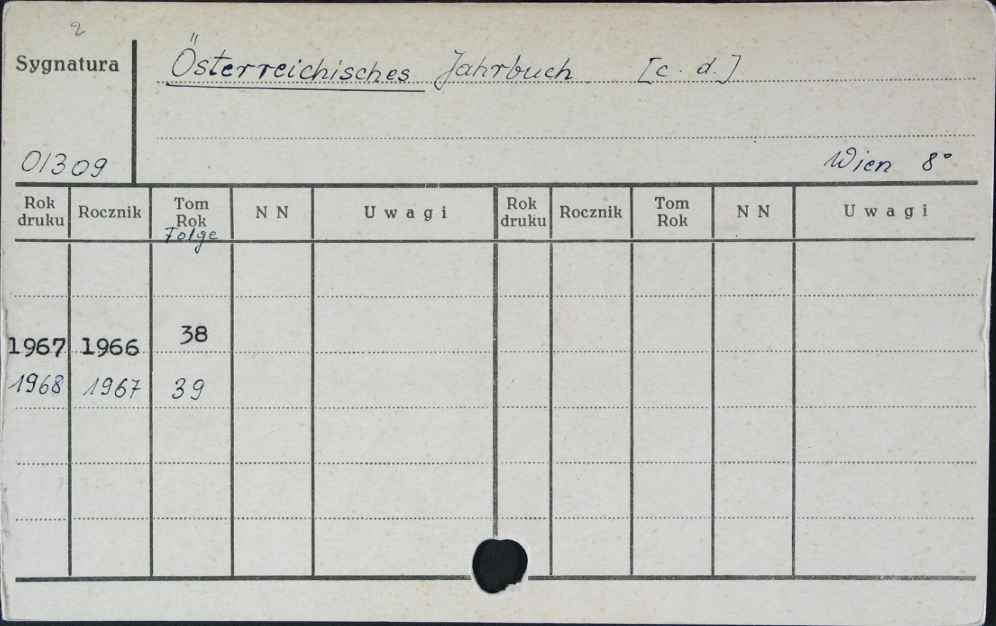 2
Sygnatura
Österreichisches Jahrbuch [c. d.]
01309
Wien 8°
Rok druku Rocznik Tom Rok N N Uwagi Rok druku Rocznik Tom Rok N N Uwagi
Folge
1967 1966 38
1968 1967 39